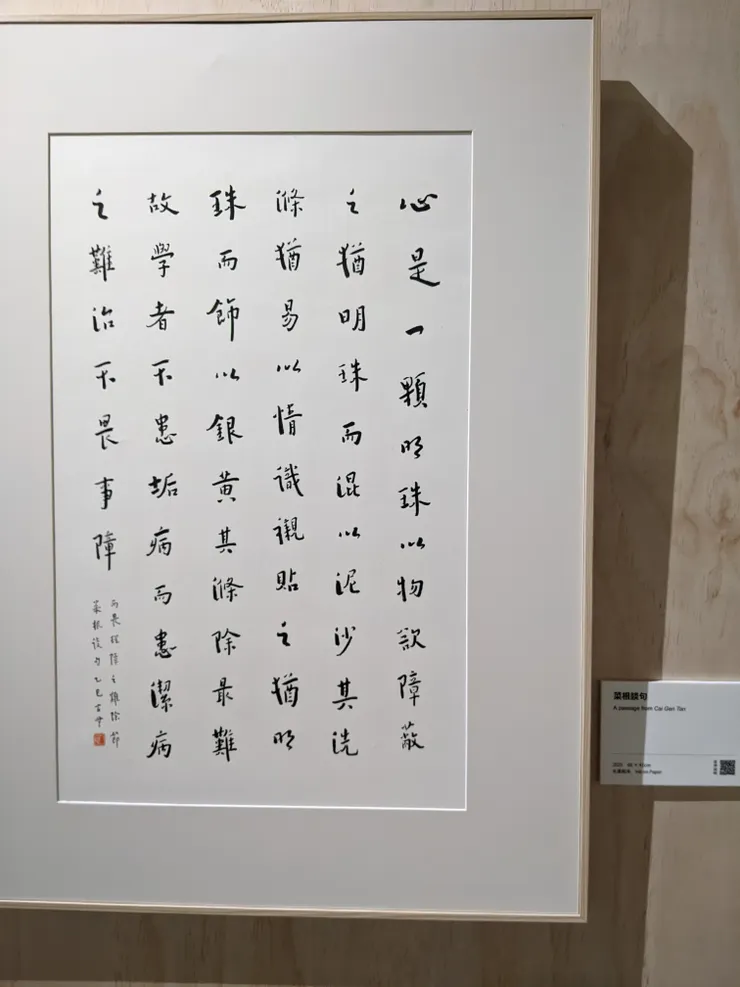 心是一顆明珠以物欲障蔽
之猶明珠而混以泥沙其洗
滌猶易以情識襯貼之猶明
珠而飾以銀黃其滌除最難
故學者不患垢病而患潔病
之難治不畏事障
而畏理障之難除節
菜根談句乙巳
菜根談句
A passage from Cai Gen Tan
Ink on Paper